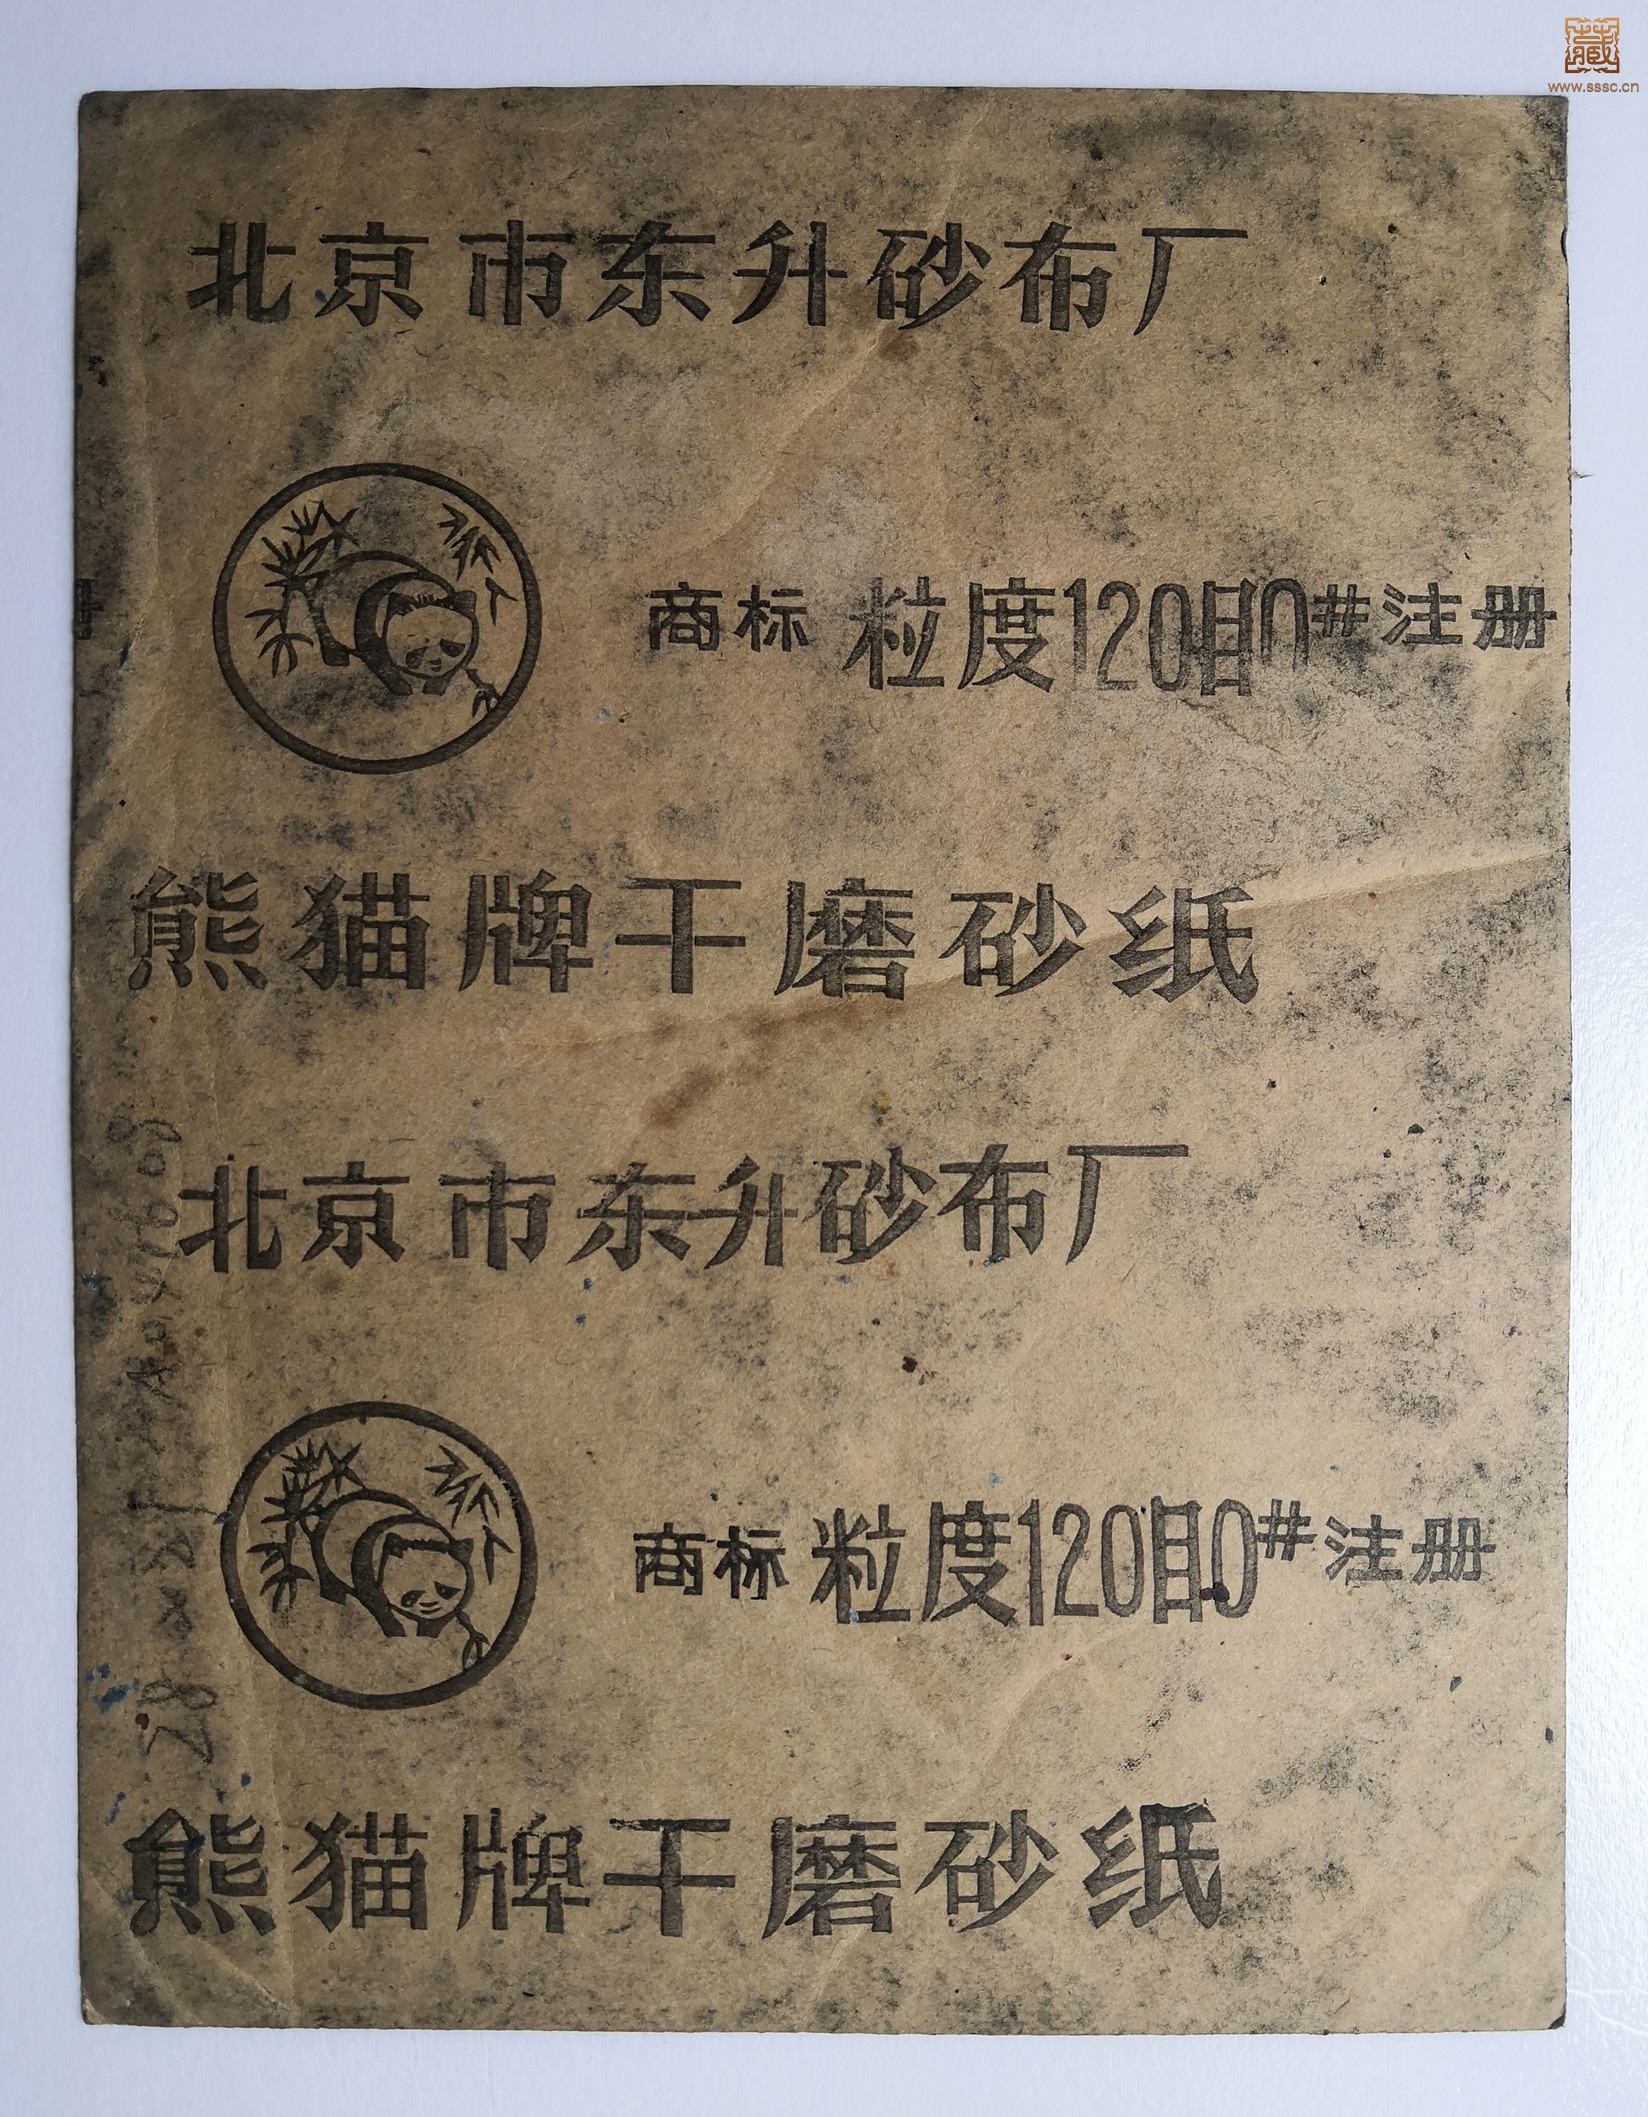 藏
www.sssc.cn
北京市东升砂布厂
商标 粒度120目0#注册
熊猫牌干磨砂纸
北京市东升砂布厂
商标 粒度120目0#注册
熊猫牌干磨砂纸